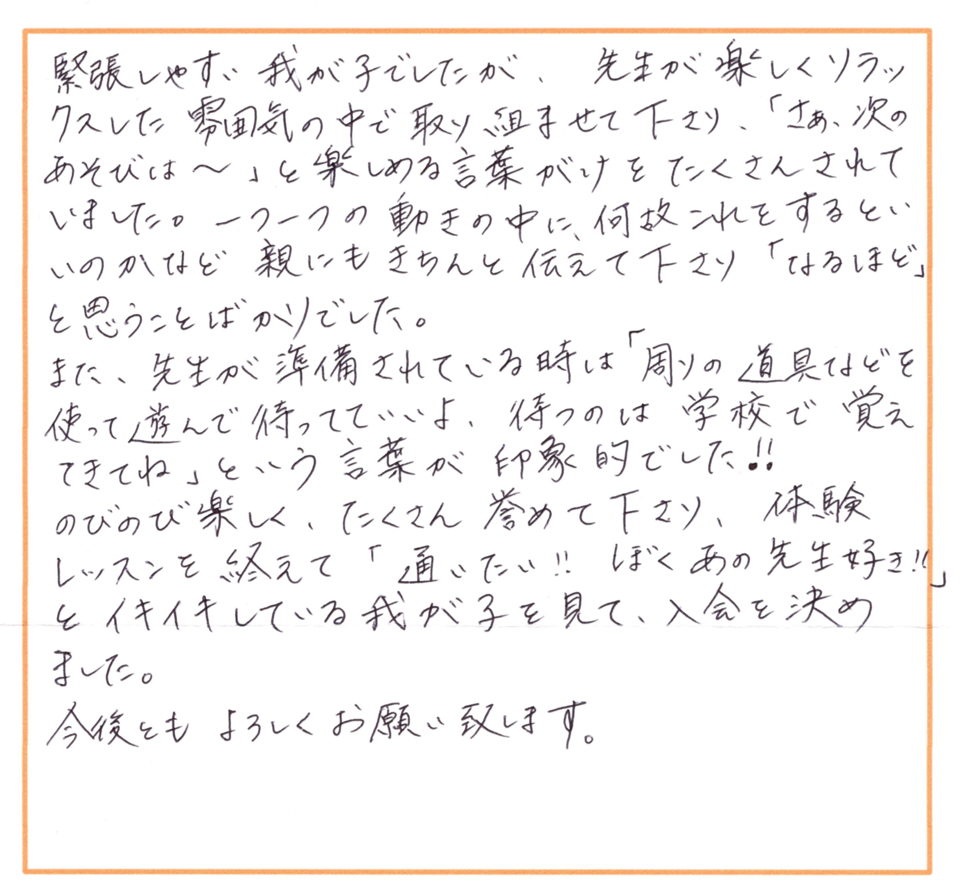 緊張しやすい我が子でしたが、先生が楽しくリラッ
クスした雰囲気の中で取り組ませて下さり、「さぁ、次の
あそびは～」と楽しめる言葉がけをたくさんされて
いました。一つ一つの動きの中に、何故これをするとい
いのかなど親にもきちんと伝えて下さり「なるほど」
と思うことばかりでした。
また、先生が準備されている時は「周りの道具などを
使って遊んで待ってていいよ、待つのは学校で覚え
てきてね」という言葉が印象的でした!!
のびのび楽しく、たくさん誉めて下さり、体験
レッスンを終えて「通いたい!! ぼくあの先生好き!!」
とイキイキしている我が子を見て、入会を決め
ました。
今後ともよろしくお願い致します。